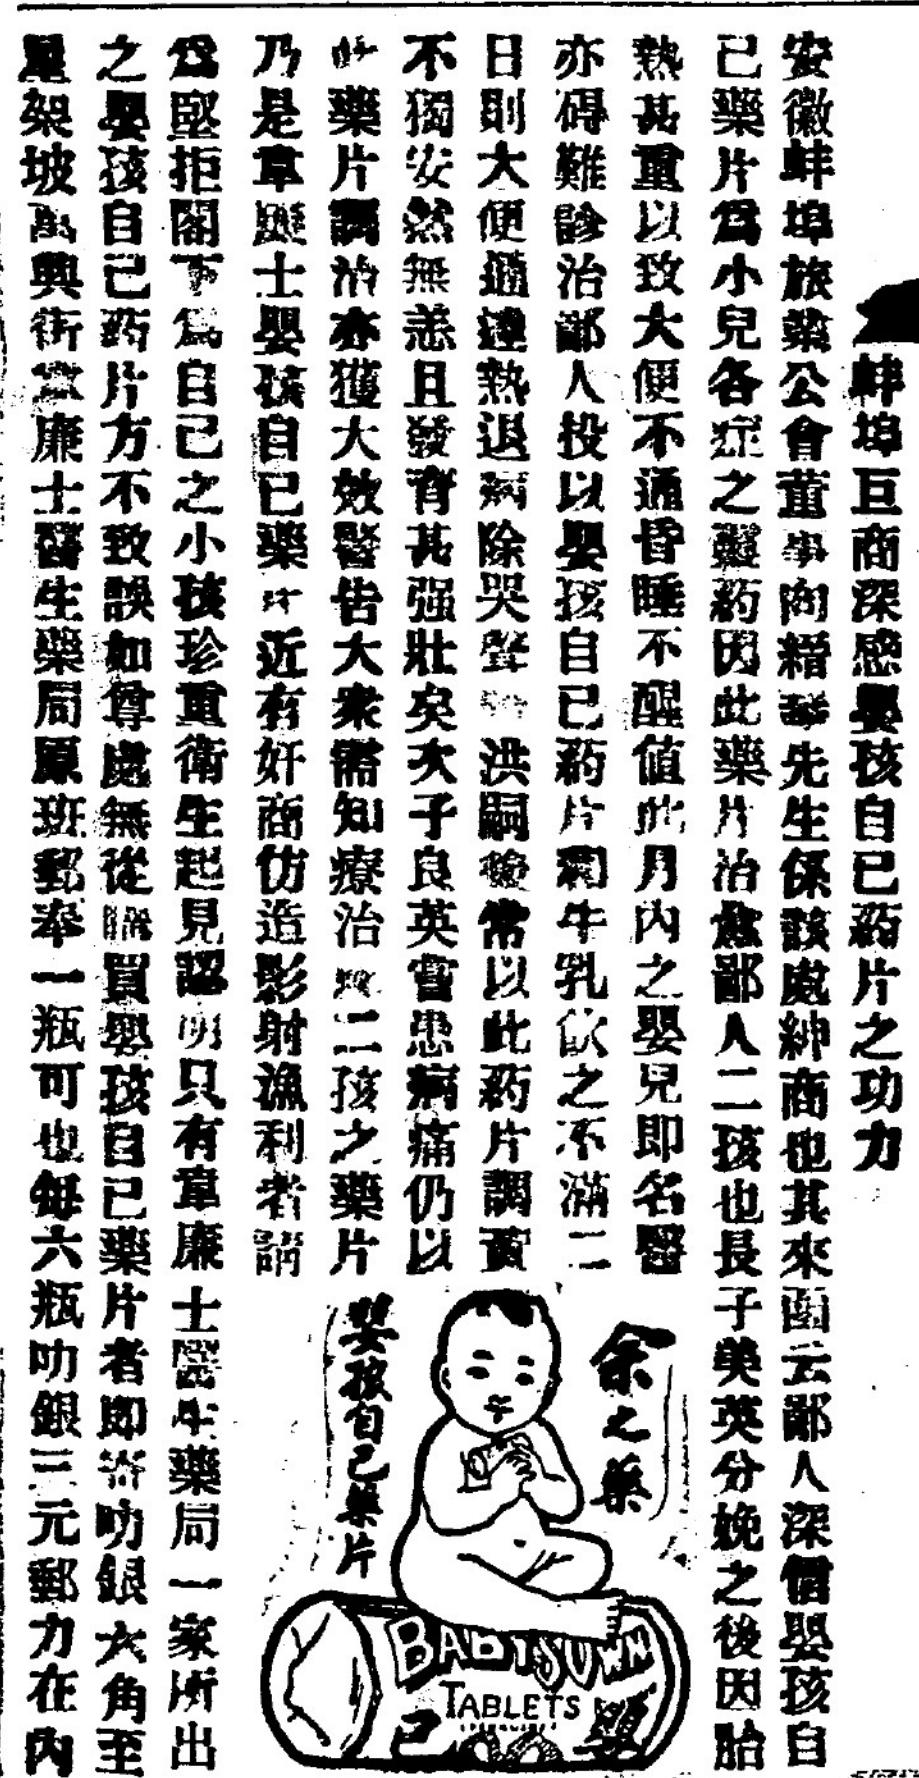 蚌埠巨商深感嬰孩自己葯片之功力
安徽蚌埠旅蕪公會董事向縉先生係該處紳商也其來函云鄙人深信嬰孩自
己藥片爲小兒各症之靈葯因此藥片治愈鄙人二孩也長子美英分娩之後因胎
熱甚重以致大便不通昏睡不醒值此月內之嬰兒即名醫
亦碍難診治鄙人投以嬰孩自己葯片和牛乳飲之不滿二
日則大便通達熱退病除哭聲洪嗣後常以此葯片調養
不獨安然無恙且發育甚强壯矣次子良英嘗患病痛仍以
此藥片調治亦獲大效謦告大衆需知療治二孩之藥片
乃是韋廉士嬰孩自己藥片近有奸商仿造影射漁利者請
爲堅拒閣下爲自己之小孩珍重衛生起見認明只有韋廉士醫生藥局一家所出
之嬰孩自己葯片方不致誤如尊處無從購買嬰孩自己藥片者即寄叻銀六角至
星架坡萬興街韋廉士醫生藥局原班郵奉一瓶可也每六瓶叻銀三元郵力在內
余之藥
嬰孩自己藥片
BABY'S OWN
TABLETS
己 嬰